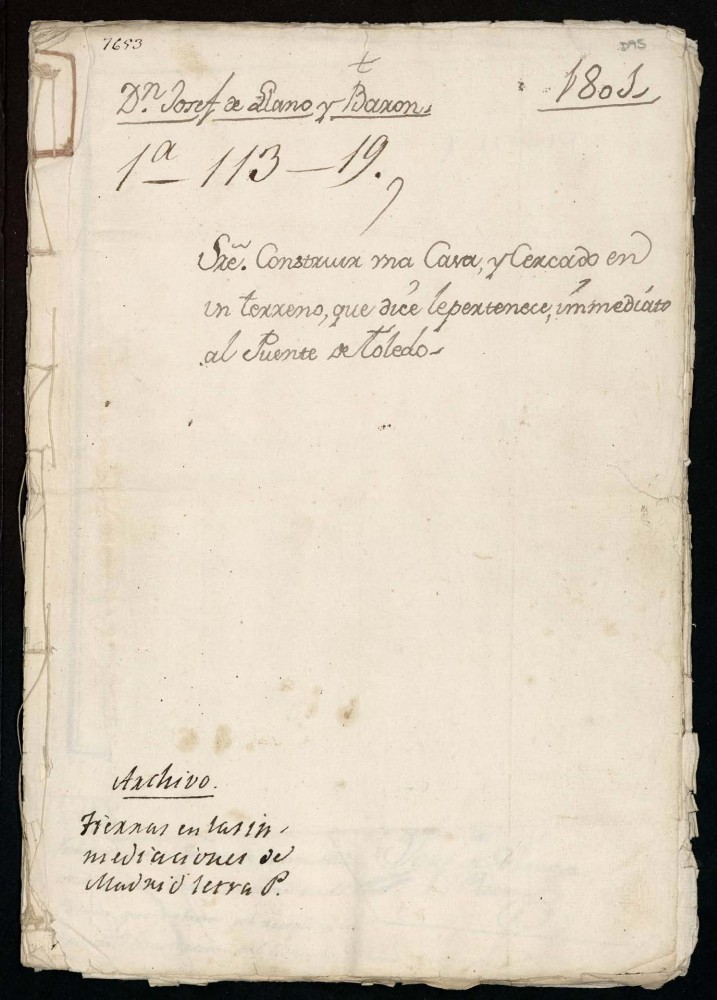 7653
D95
†
Dn. Josef de Llano y Baxon.
1801
1a 113-19.
Sre. Construir una Casa, y Cercado en
un terreno, que dice le pertenece, immediato
al Puente de Toledo
Archivo.
Tierras en las in-
mediaciones de
Madrid letra P.